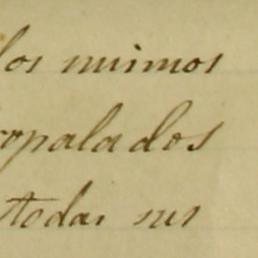 los mismos
ropalados
todas sus